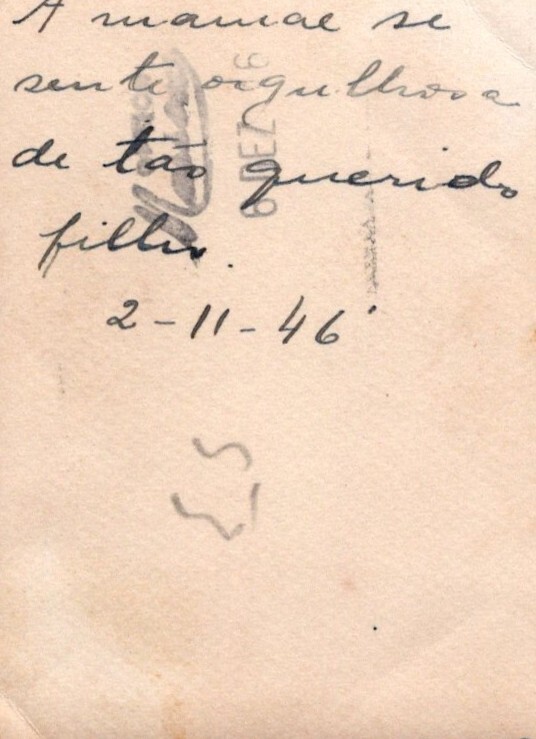 A mamãe se
sente orgulhosa
de tão querido
filho.
2-11-46
6 DEZ